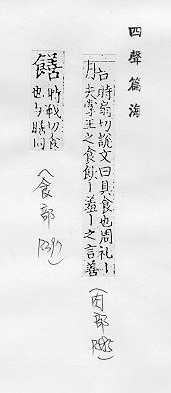 四聲篇海
時扇切說文曰具食也周礼丨
夫掌王之食飲丨羞丨之言善
(肉部
饍 時戰切食
也与膳同
(食部